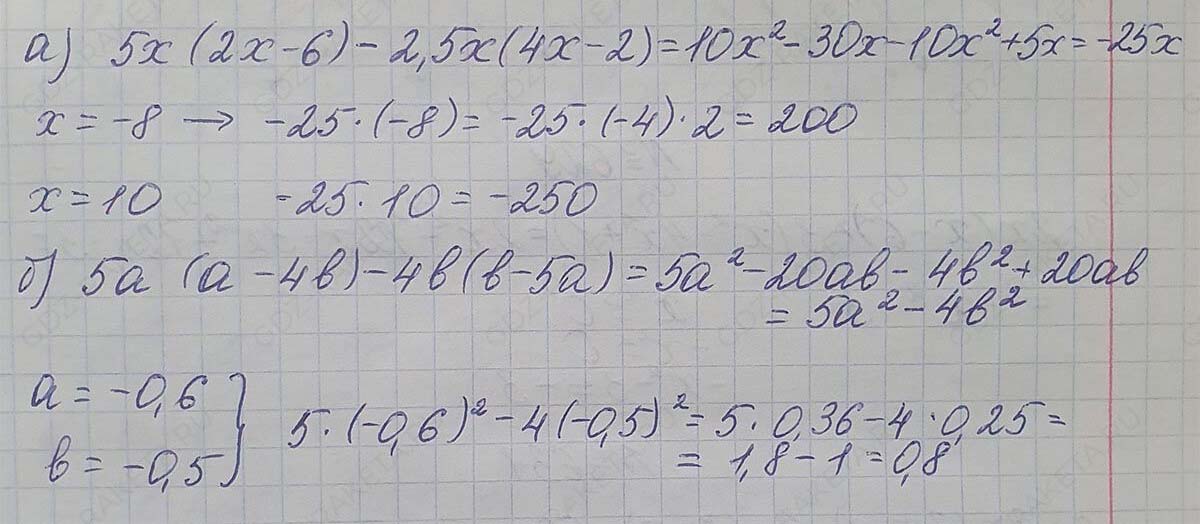 а) 5x (2x - 6) - 2,5x(4x - 2) = 10x² - 30x - 10x² + 5x = -25x
x = -8 → -25·(-8) = -25·(-4)·2 = 200
x = 10 -25·10 = -250
б) 5a (a - 4в) - 4в (в - 5a) = 5a² - 20aв - 4в² + 20aв
= 5a² - 4в²
a = -0,6
в = -0,5
} 5·(-0,6)² - 4(-0,5)² = 5·0,36 - 4·0,25 =
= 1,8 - 1 = 0,8